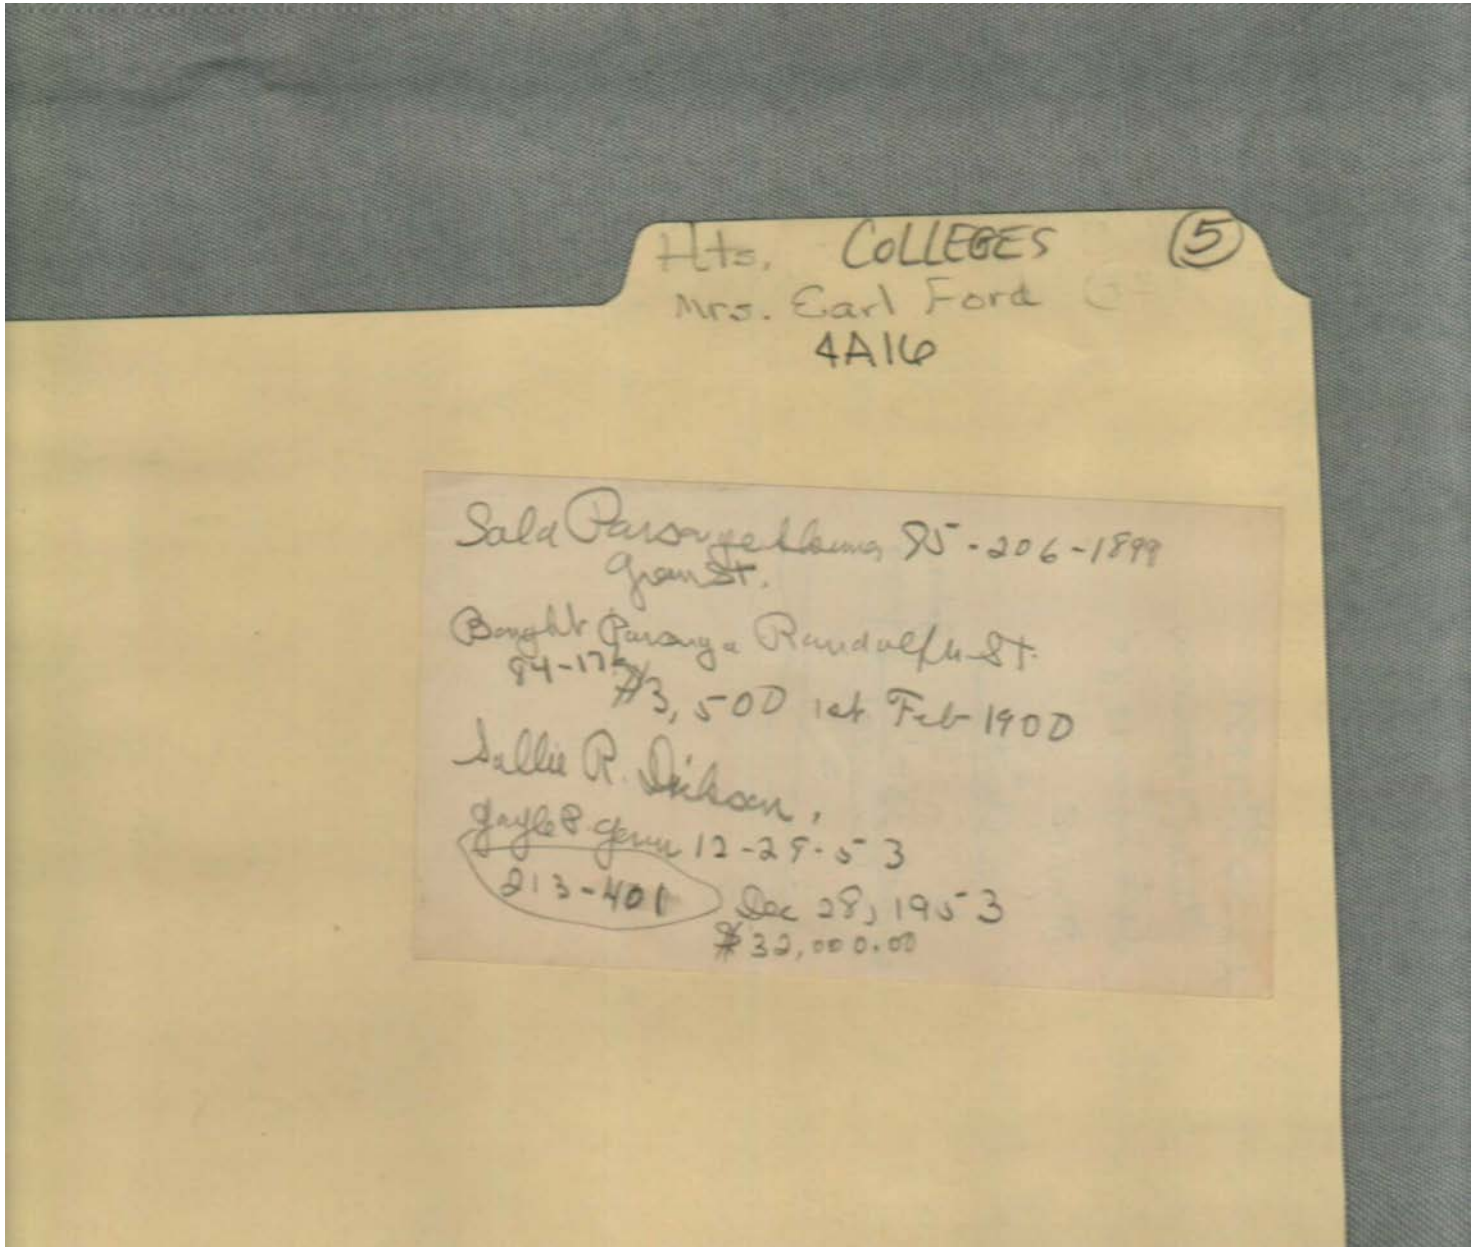 Hts. COLLEGES 5
Mrs. Earl Ford
4A16
Sold Parsonage 85-206-1899
Green St.
Bought Parsonage Randolph St.
84-17
$3,500 1st Feb 1900
Sallie R. Dickson,
Gayle P. 12-29-53
213-401 Dec 28, 1953
$32,000.00